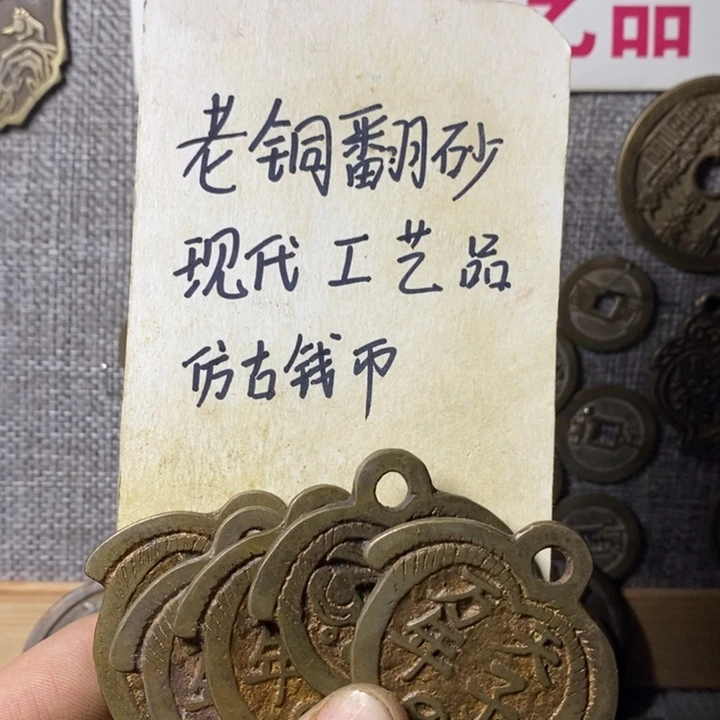 艺品
老铜翻砂
现代工艺品
仿古钱币
年
年